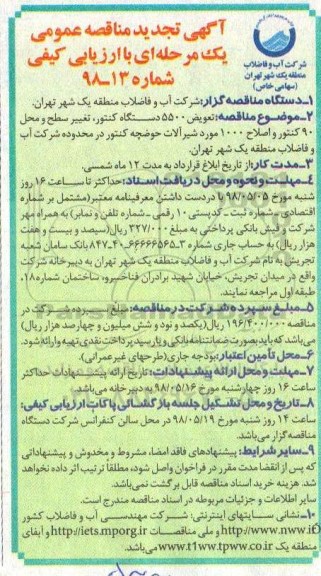 آگهی تجدید مناقصه عمومی
یک مرحله‌ای با ارزیابی کیفی
شماره ۱۳-۹۸
شرکت آب و فاضلاب
منطقه یک شهر تهران
(سهامی خاص)
۱-دستگاه مناقصه گزار: شرکت آب و فاضلاب منطقه یک شهر تهران.
۲-موضوع مناقصه: تعویض ۵۵۰۰ دستگاه کنتور، تغییر سطح و محل
۹۰ کنتور و اصلاح ۱۰۰۰ مورد شیرآلات حوضچه کنتور در محدوده شرکت آب
و فاضلاب منطقه یک شهر تهران.
۳-مدت کار: از تاریخ ابلاغ قرارداد به مدت ۱۲ ماه شمسی.
۴-مهلت و نحوه و محل دریافت اسناد: حداکثر تا ساعت ۱۶ روز
شنبه مورخ ۹۸/۰۵/۰۵ با در دست داشتن معرفینامه معتبر (مشتمل بر شماره
اقتصادی - شماره ثبت - کدپستی ۱۰ رقمی - شماره تلفن و نمابر) به همراه مهر
شرکت و فیش بانکی پرداختی به مبلغ ۳۲۷/۰۰۰ ریال (سیصد و بیست و هفت
هزار ریال) به حساب جاری شماره ۳-۶۶۶۶۶۵۶۵-۴۰-۸۴۷ بانک سامان شعبه
تجریش به نام شرکت آب و فاضلاب منطقه یک شهر تهران به دبیرخانه شرکت
واقع در میدان تجریش، خیابان شهید برادران فناخسرو، ساختمان شماره ۱۸،
طبقه اول مراجعه نمایند.
۵-مبلغ سپرده شرکت در مناقصه: مبلغ سپرده شرکت در
مناقصه ۱۹۶/۴۰۰/۰۰۰ ریال (یکصد و نود و شش میلیون و چهارصد هزار ریال)
می‌باشد که باید بصورت ضمانتنامه بانکی و یا رسید پرداخت نقدی تهیه و ارائه شود.
۶-محل تأمین اعتبار: بودجه جاری (طرحهای غیرعمرانی).
۷-مهلت و محل ارائه پیشنهادات: تاریخ ارائه پیشنهادات حداکثر
ساعت ۱۶ روز چهارشنبه مورخ ۹۸/۰۵/۱۶ به دبیرخانه می‌باشد.
۸-تاریخ و محل تشکیل جلسه بازگشائی پاکات ارزیابی کیفی:
ساعت ۱۴ روز شنبه مورخ ۹۸/۰۵/۱۹ در محل سالن کنفرانس شرکت دستگاه
مناقصه گزار می‌باشد.
۹-سایر شرایط: پیشنهادهای فاقد امضا، مشروط و مخدوش و پیشنهاداتی
که پس از انقضا مدت مقرر در فراخوان واصل شود، مطلقا ترتیب اثر داده نخواهد
شد. هزینه خرید اسناد مناقصه قابل برگشت نمی‌باشد.
سایر اطلاعات و جزئیات مربوطه در اسناد مناقصه مندرج است.
۱۰-نشانی سایتهای اینترنتی: شرکت مهندسی آب و فاضلاب کشور
http://www.nww.ir و ملی مناقصات http://iets.mporg.ir و آبفای
منطقه یک www.t1ww.tpww.co.ir می‌باشد.